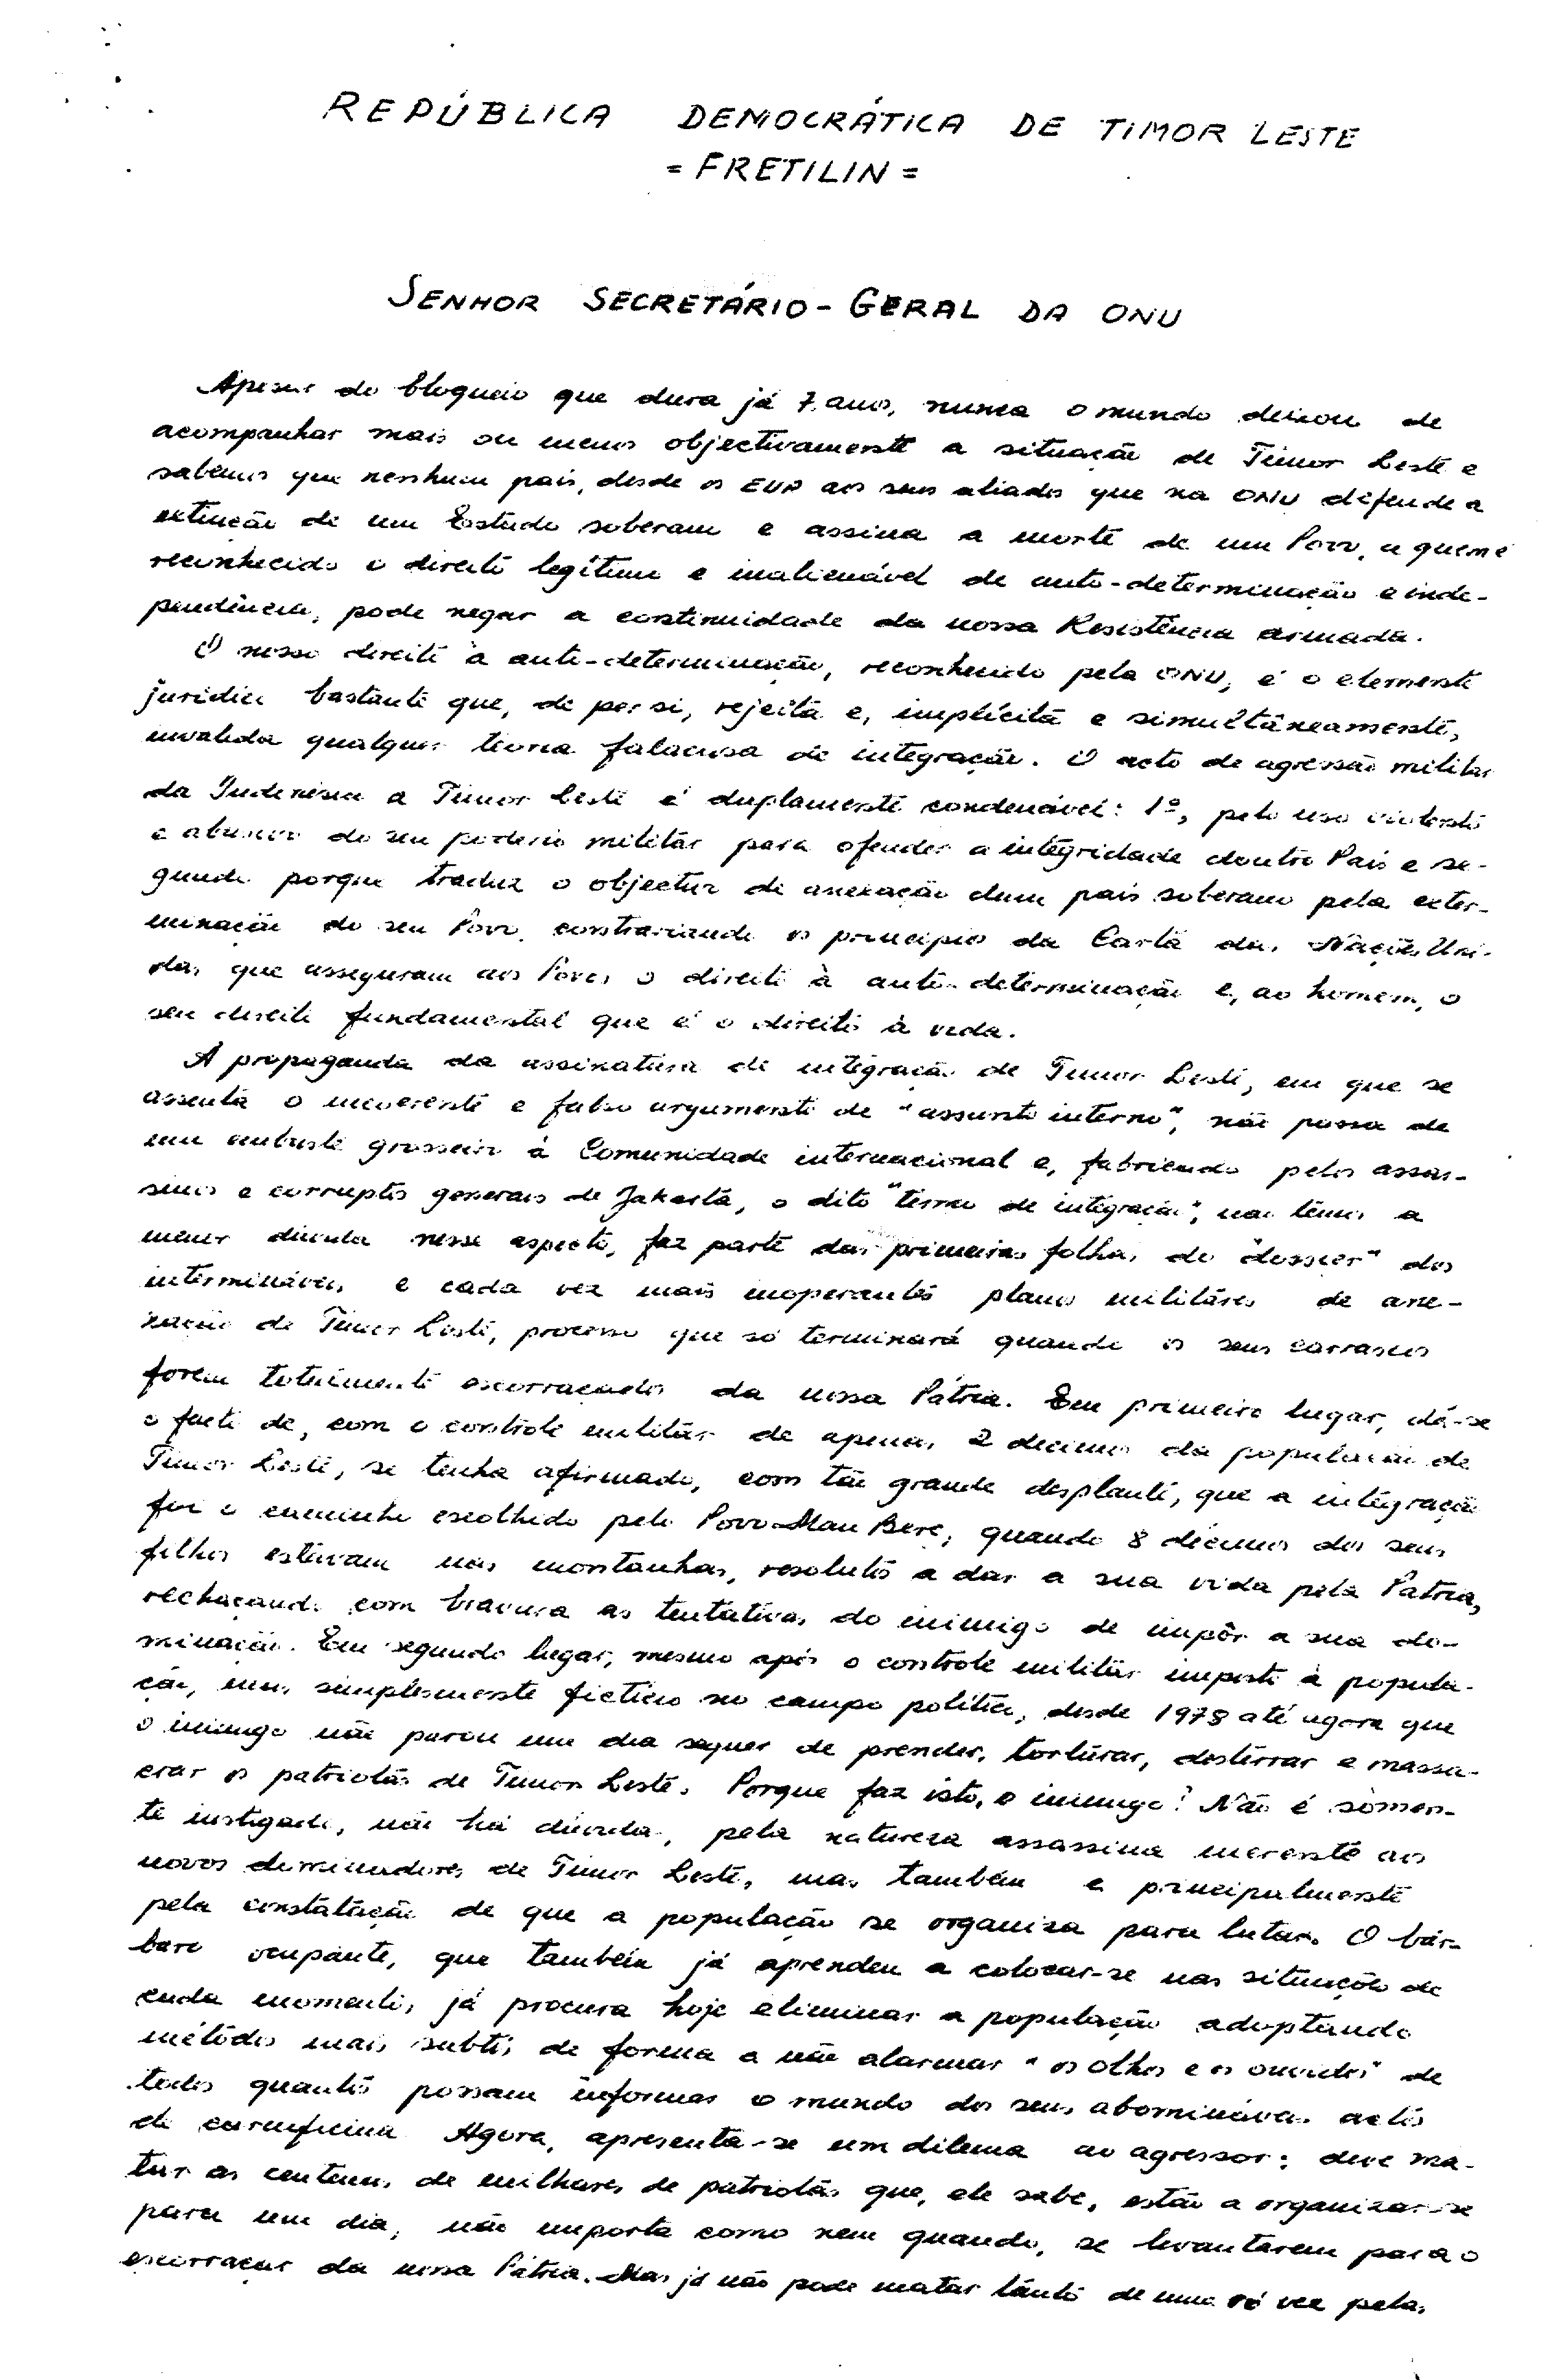 REPÚBLICA DEMOCRÁTICA DE TIMOR LESTE
= FRETILIN =
SENHOR SECRETÁRIO-GERAL DA ONU
Apesar do bloqueio que dura já 7 anos, nunca o mundo deixou de
acompanhar mais ou menos objectivamente a situação de Timor Leste e
sabemos que nenhum país, desde os EUA aos seus aliados que na ONU defende a
extinção de um Estado soberano e assina a morte de um Povo, a quem é
reconhecido o direito legítimo e inalienável de auto-determinação e inde-
pendência, pode negar a continuidade da nossa Resistência armada.
O nosso direito à auto-determinação, reconhecido pela ONU, é o elemento
jurídico bastante que, de per si, rejeita e, implícita e simultâneamente,
invalida qualquer teoria falaciosa de integração. O acto de agressão militar
da Indonésia a Timor Leste é duplamente condenável: 1º, pelo uso violento
e abusivo do seu poderio militar para ofender a integridade doutro País e se-
gundo porque traduz o objectivo de anexação dum país soberano pela exter-
minação do seu Povo, contrariando os princípios da Carta das Nações Uni-
das que asseguram aos Povos o direito à auto-determinação e, ao homem, o
seu direito fundamental que é o direito à vida.
A propaganda da assinatura de integração de Timor Leste, em que se
assenta o incoerente e falso argumento de "assunto interno", não passa de
um embuste grosseiro à Comunidade internacional e, fabricado pelos assas-
sinos e corruptos generais de Jakarta, o dito "termo de integração", não temos a
menor dúvida nesse aspecto, faz parte das primeiras folhas do "dossier" dos
intermináveis e cada vez mais inoperantes planos militares de ane-
xação de Timor Leste, processo que só terminará quando os seus carrascos
forem totalmente escorraçados da nossa Pátria. Em primeiro lugar, dá-se
o facto de, com o controle militar de apenas 2 décimos da população de
Timor Leste, se tenha afirmado, com tão grande desplante, que a integração
foi o caminho escolhido pelo Povo Mau Bere, quando 8 décimos dos seus
filhos estavam nas montanhas, resolutos a dar a sua vida pela Pátria,
rechaçando com bravura as tentativas do inimigo de impôr a sua do-
minação. Em segundo lugar, mesmo após o controle militar imposto à popula-
ção, mas simplesmente fictício no campo político, desde 1978 até agora que
o inimigo não parou um dia sequer de prender, torturar, desterrar e massa-
crar os patriotas de Timor Leste. Porque faz isto, o inimigo? Não é sòmen-
te instigado, não há dúvida, pela natureza assassina inerente aos
novos dominadores de Timor Leste, mas também e principalmente
pela constatação de que a população se organiza para lutar. O bár-
baro ocupante, que também já aprendeu a colocar-se nas situações de
cada momento, já procura hoje eliminar a população adoptando
métodos mais subtis de forma a não alarmar "os olhos e os ouvidos" de
todos quantos possam informar o mundo dos seus abomináveis actos
de carnificina. Agora, apresenta-se um dilema ao agressor: deve ma-
tar as centenas de milhares de patriotas que, ele sabe, estão a organizar-se
para um dia, não importa como nem quando, se levantarem para o
escorraçar da nossa Pátria. Mas já não pode matar tanto de uma só vez pelas